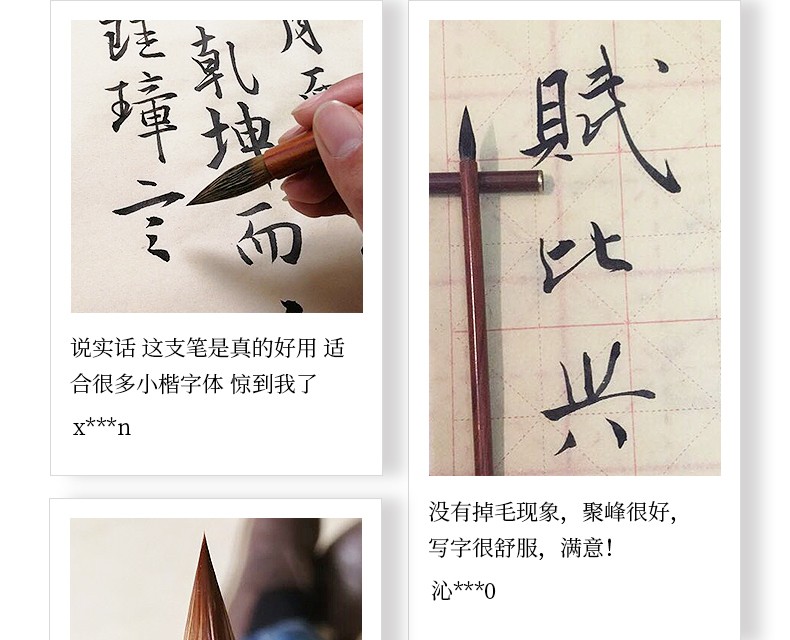 乾
坤
而
璋
言
賦
比
兴
说实话 这支笔是真的好用 适
合很多小楷字体 惊到我了
x***n
没有掉毛现象，聚峰很好，
写字很舒服，满意！
沁***0